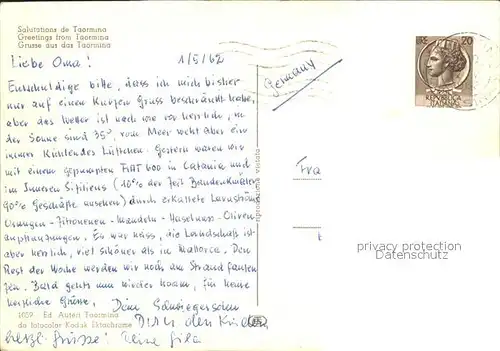 Salutations de Taormina
Greetings from Taormina
Grüsse aus das Taormina
Liebe Oma! 1/5/62
Entschuldige bitte, dass ich mich bisher
nur auf einen kurzen Gruss beschränkt habe,
aber das Wetter ist nach wie vor herrlich, in
der Sonne sind 35°, vom Meer weht aber ein
immer kühlendes Lüftchen. Gestern waren wir
mit einem gepumpten FIAT 600 in Catania und
im Inneren Siziliens (10% der Zeit Bandenkwäler
90% Geschäfte ansehen) durch erkaltete Lavaströme
Orangen - Zitronenen - Mandeln - Haselnuss - Oliven
anpflanzungen. Es war heiss, die Landschaft ist
aber herrlich, viel schöner als in Mallorca. Den
Rest der Woche werden wir noch am Strand faulen
zen. Bald gehts nun wieder hoam, für heute
herzliche Grüsse, Dein Schwiegersohn
Dirk den Kinder
herzl. Grüsse! Deine Gila
1059 - Ed. Auteri Taormina
da fotocolor Kodak Ektachrome
riproduzione vietata
Germany
Fra
20
privacy protection
www.oldthing.de